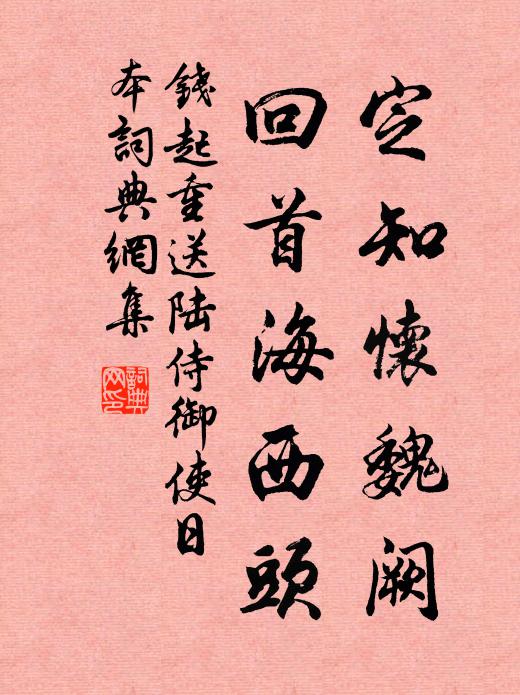 定知懷魏阙
回首海西頭
錢起重送陆侍御使日
本詞典網集
詞典网印